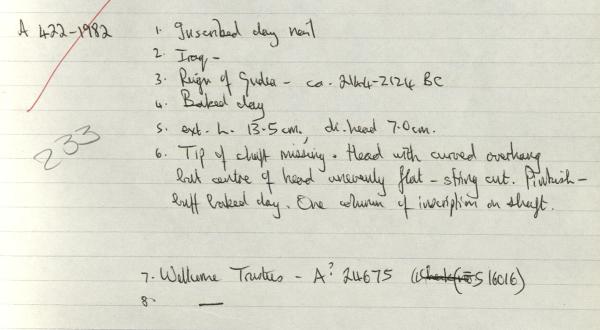 A 422-1982
1. Inscribed clay nail
2. Iraq -
3. Reign of Gudea - ca. 2144-2124 BC
4. Baked clay
233
5. ext. L. 13.5 cm, di. head 7.0 cm.
6. Tip of shaft missing. Head with curved overhang
but centre of head unevenly flat - string cut. Pinkish-
buff baked clay. One column of inscription on shaft.
7. Wellcome Trustees - A? 24675 (516016)
8. —